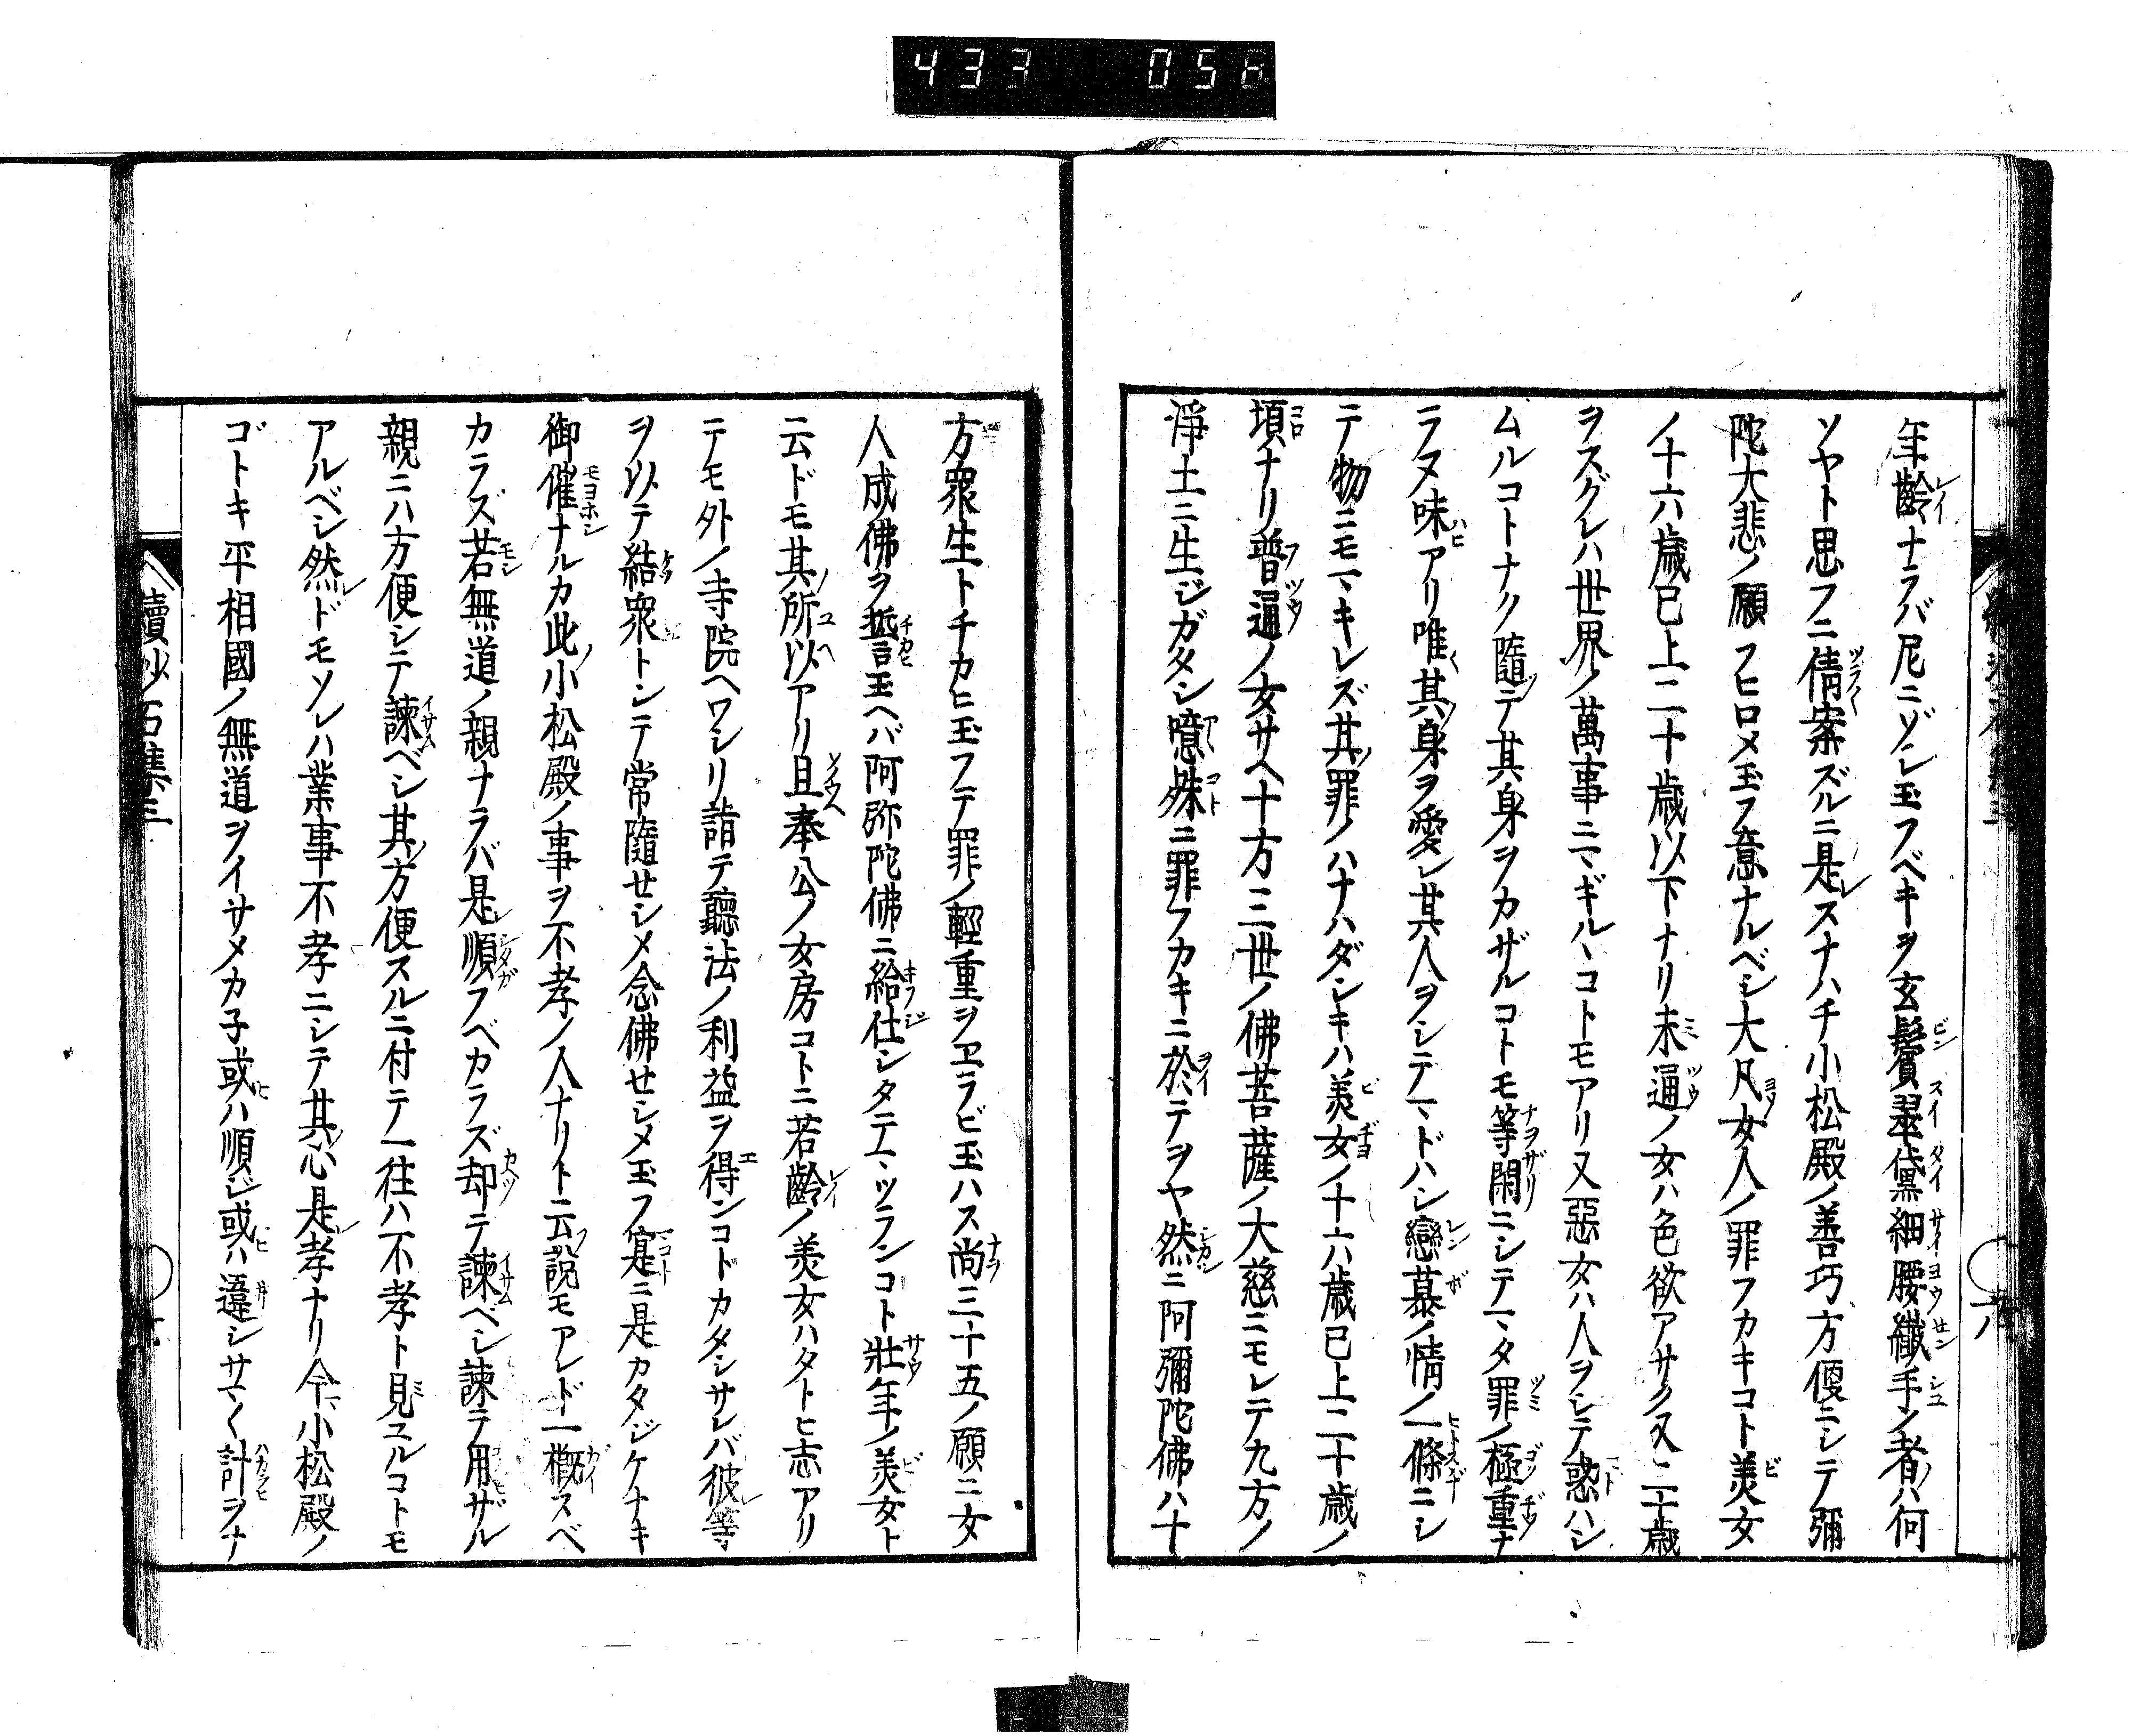 433 058
年齡ナラバ尼ニゾシ玉フベキヲ玄鬢翠黛細腰纖手ノ者ハ何
ソヤト思フニ倩案ズルニ是レスナハチ小松殿ノ善巧方便ニシテ彌
陀大悲ノ願フヒロメ玉フ意ナルベシ大凡女人ノ罪フカキコト美女
ノ十六歳已上二十歳以下ナリ未通ノ女ハ色欲アサク又二十歳
ヲスグレハ世界ノ萬事ニマギルヽコトモアリ又惡女ハ人ヲシテ惑ハシ
ムルコトナク隨テ其身ヲカザルコトモ等閑ニシテマタ罪ノ極重ナ
ラヌ味アリ唯其身ヲ愛シ其人ヲシテマドハシ戀慕ノ情ノ一條ニシ
テ物ニモマキレズ其罪ノハナハダシキハ美女ノ十六歳已上二十歳ノ
頃ナリ普通ノ女サヘ十方三世ノ佛菩薩ノ大慈ニモレテ九方ノ
淨土ニ生ジガタシ噫殊ニ罪フカキニ於テヲヤ然ニ阿彌陀佛ハ十
六
方衆生トチカヒ玉フテ罪ノ輕重ヲヱラビ玉ハス尚三十五ノ願ニ女
人成佛ヲ誓玉ヘバ阿弥陀佛ニ給仕シタテマツランコト壯年ノ美女ト
云ドモ其所以アリ且奉公ノ女房コトニ若齡ノ美女ハタトヒ志アリ
テモ外ノ寺院ヘワシリ詣テ聽法ノ利益ヲ得ンコトカタシサレバ彼等
ヲ以テ結衆トシテ常隨せシメ念佛せシメ玉フ寔ニ是カタジケナキ
御催ナルカ此小松殿ノ事ヲ不孝ノ人ナリト云説モアレド一槪スベ
カラズ若無道ノ親ナラバ是順フベカラズ却テ諫ベシ諫テ用ザル
親ニハ方便シテ諫ベシ其方便スルニ付テ一往ハ不孝ト見ユルコトモ
アルベシ然ドモソレハ業事不孝ニシテ其心是孝ナリ今小松殿ノ
ゴトキ平相國ノ無道ヲイサメカ子或ハ順ジ或ハ違シサマ〱計ヲナ
續沙石集三